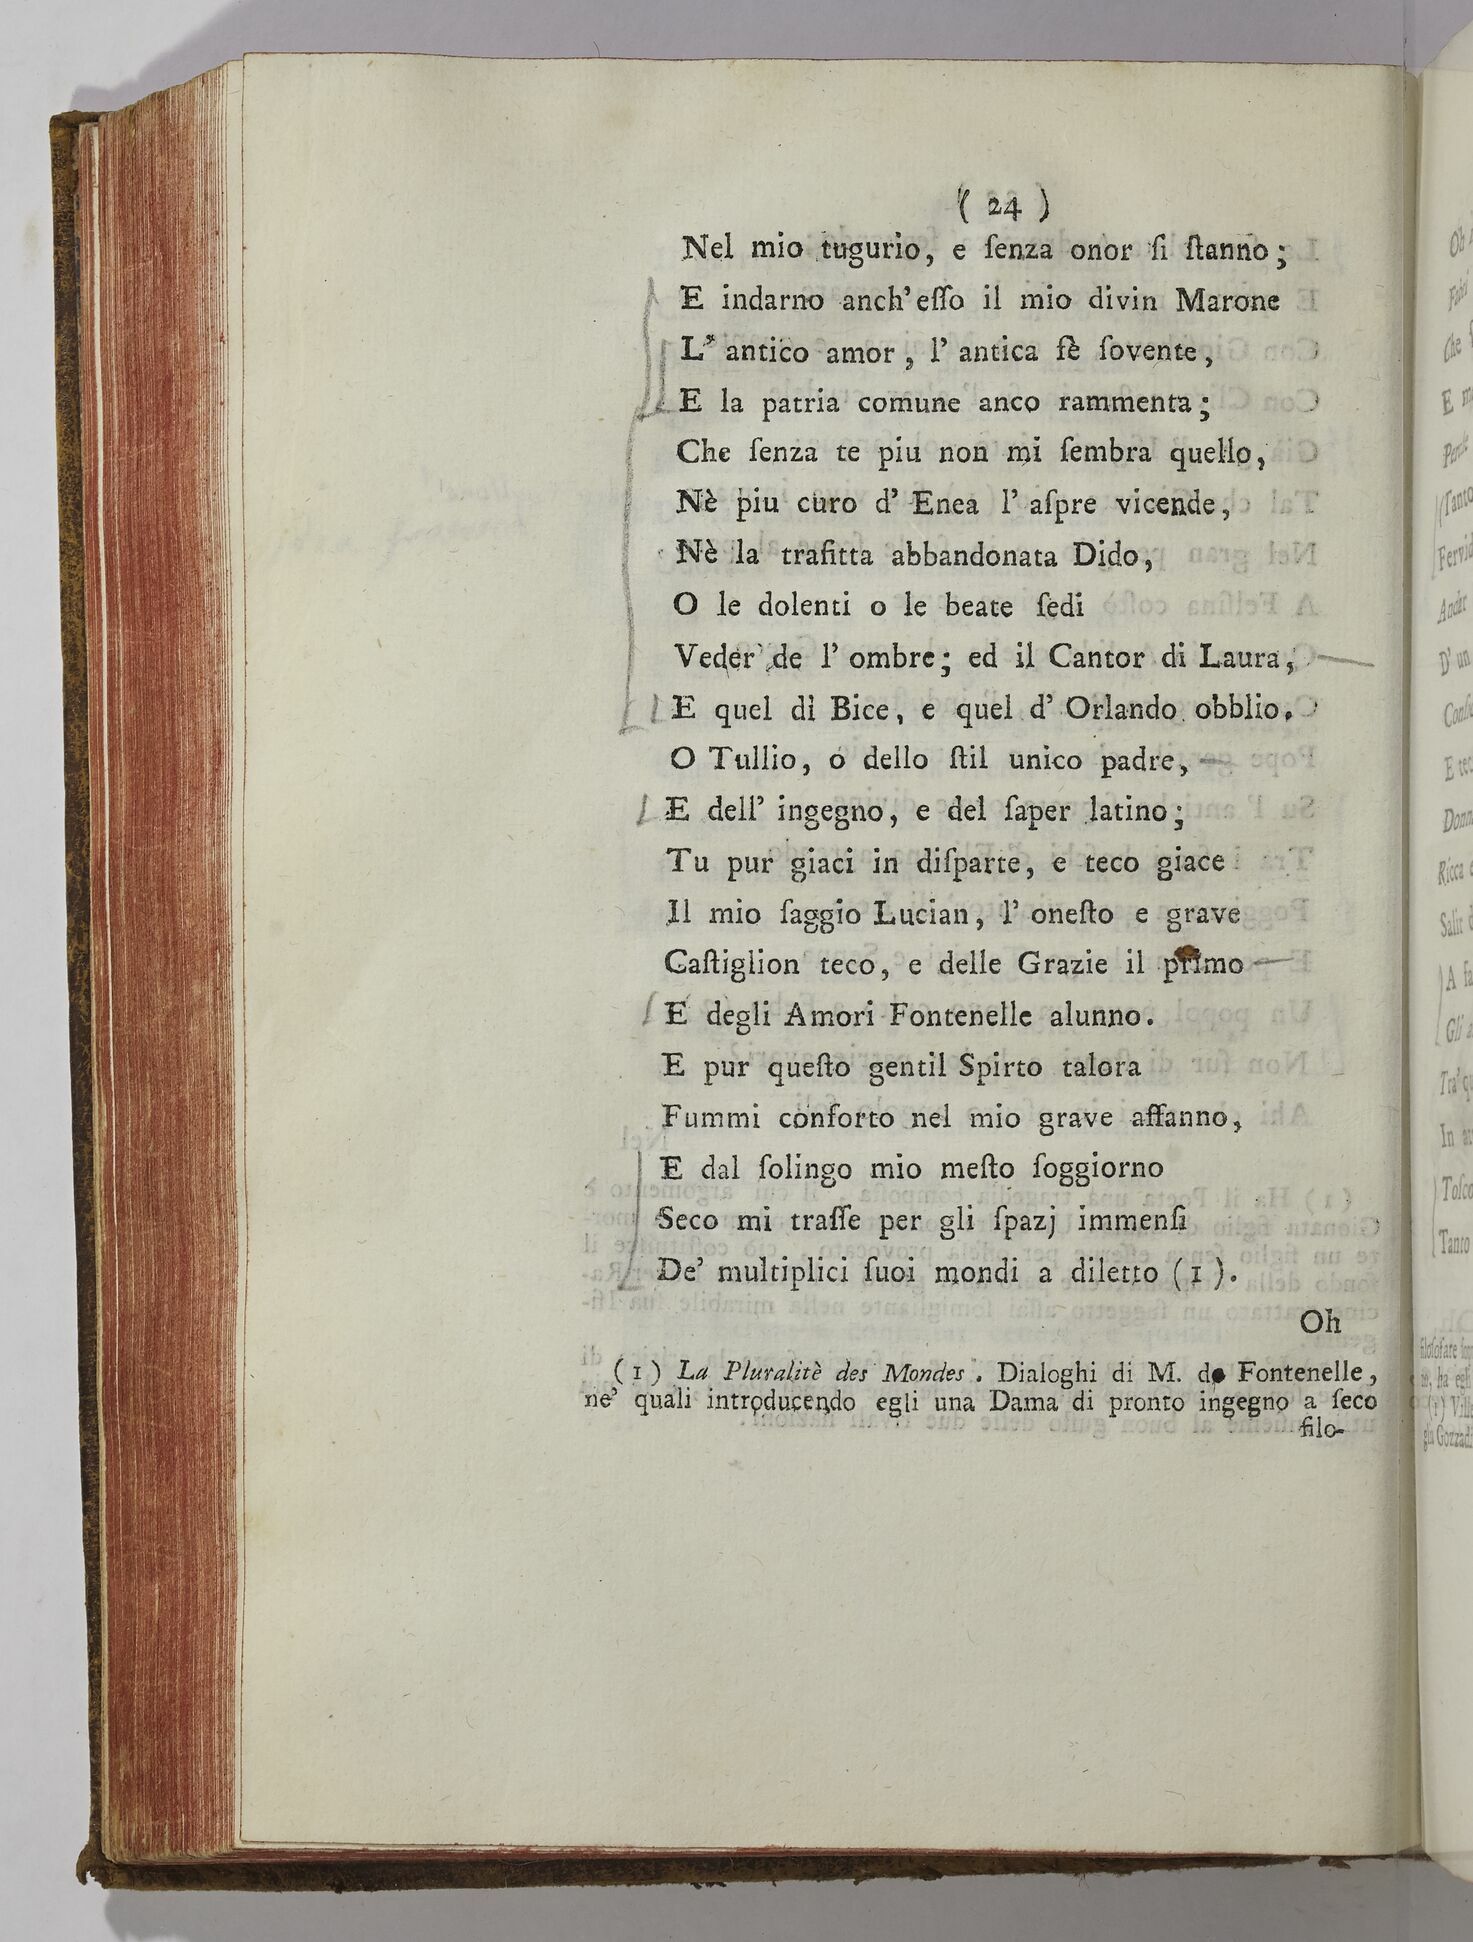 ( 24 )
Nel mio tugurio, e ſenza onor ſi ſtanno;
E indarno anch'eſſo il mio divin Marone
L' antico amor, l' antica fè ſovente,
E la patria comune anco rammenta;
Che ſenza te piu non mi ſembra quello,
Nè piu curo d' Enea l' aſpre vicende,
Nè la trafitta abbandonata Dido,
O le dolenti o le beate ſedi
Veder de l' ombre; ed il Cantor di Laura,
E quel di Bice, e quel d' Orlando obblio.
O Tullio, o dello ſtil unico padre,
E dell' ingegno, e del ſaper latino;
Tu pur giaci in diſparte, e teco giace
Il mio ſaggio Lucian, l' oneſto e grave
Caſtiglion teco, e delle Grazie il primo
E degli Amori Fontenelle alunno.
E pur queſto gentil Spirto talora
Fummi conforto nel mio grave affanno,
E dal ſolingo mio meſto ſoggiorno
Seco mi traſſe per gli ſpazj immenſi
De' multiplici ſuoi mondi a diletto (1).
Oh
(1) La Pluralitè des Mondes. Dialoghi di M. de Fontenelle,
ne' quali introducendo egli una Dama di pronto ingegno a ſeco
filo-